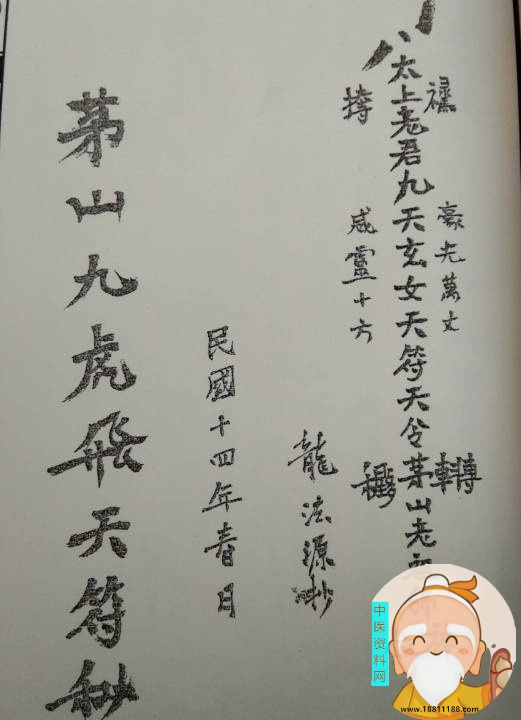 豪光萬丈
轉
太上老君九天玄女天符天令茅山老
威靈十方
龍法源抄
民國十四年春日
茅山九虎飛天符秘
中医资料网
www.18811188.com